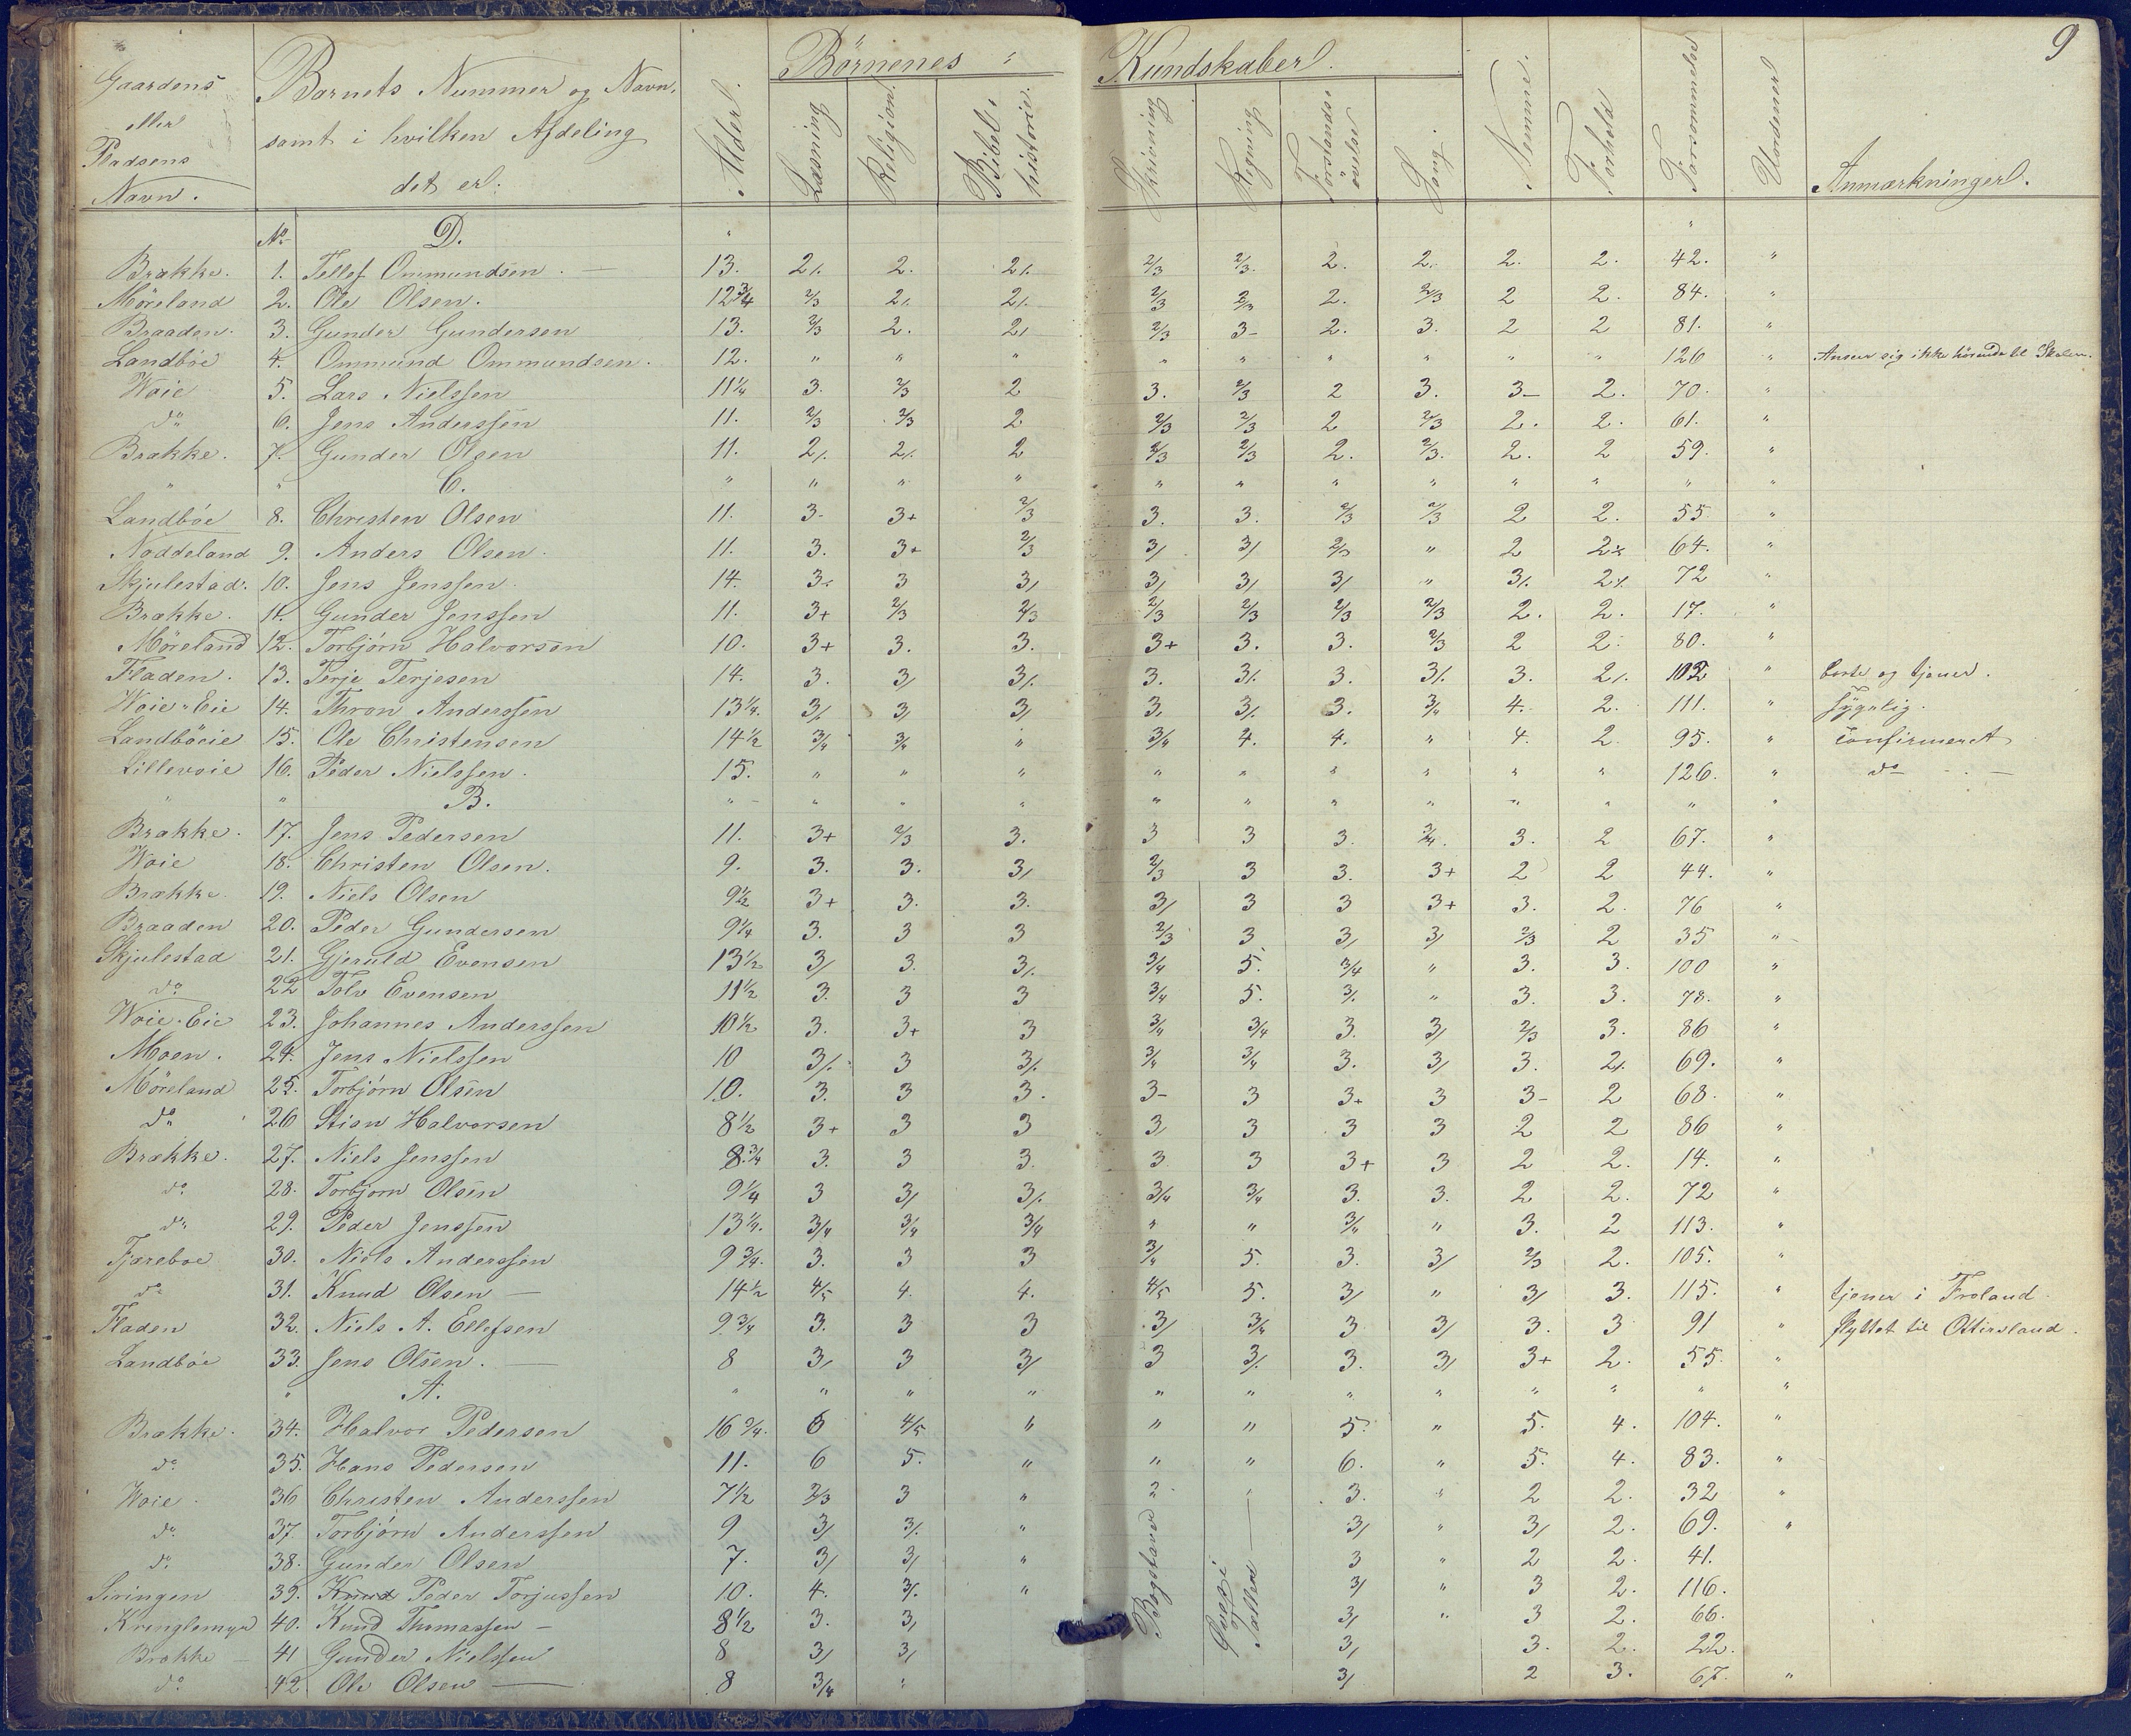 9
Gaardens eller Pladsens Navn. Barnets Nummer og Navn, samt i hvilken Afdeling det er. Alder. Børnenes Kundskaber. Læsning Religion. Bibelhistorie. Skrivning Regning Forstandsøvelse Sang. Nemme. Forhold Forsømmelse Uordener Anmærkninger.
No D. "
Brække. 1. Tellef Ommundsen. — 13. 2/. 2. 2/. 2/3 2/3. 2. 2. 2. 2. 42. "
Möreland 2. Ole Olsen. 12 3/4 2/3 2/. 2/. 2/3 2/3 2. 2/3 2 2. 84. "
Braaden. 3. Gunder Gundersen 13. 2/3 2. 2/ 2/3 3- 2. 3. 2 2 81. "
Landböe 4. Ommund Ommundsen. 12. " " " " " " " " " 126 " Anseer sig ikke hörende til Skolen.
Woie 5. Lars Nielssen 11 1/4 3. 2/3 2 3. 2/3 2 3. 3- 2. 70. "
do 6. Jens Anderssen 11. 2/3 2/3 2 2/3 2/3 2 2/3 2. 2. 61. "
Brække. 7. Gunder Olsen 11. 2/. 2/. 2 2/3 2/3 2. 2/3. 2. 2 59. "
" " C. " " " " " " " " " " " "
Landböe 8. Christen Olsen 11. 3- 3+ 2/3 3. 3. 2/3 2/3 2 2. 55 "
Naddeland 9. Anders Olsen. 11. 3. 3+ 2/3 3/ 3/ 2/3 " 2 2/. 64. "
Skjulestad. 10. Jens Jenssen. 14. 3- 3 3/ 3/ 3/ 3/ " 3/. 2/. 72 "
Brække. 11. Gunder Jenssen 11. 3+ 2/3 2/3 2/3 2/3 2/3 2/3 2. 2. 17. "
Möreland 12. Torbjørn Halvorsen 10. 3+ 3. 3. 3+ 3. 3. 2/3 2 2. 80. "
Fladen. 13. Terje Terjesen 14. 3. 3/ 3/. 3. 3/. 3. 3/. 3. 2/. 102 " borte og tjener.
Woie-Eie 14. Thron Anderssen 13 1/4. 3/. 3/ 3/ 3, 3/. 3. 3/4 4. 2. 111. " Sygelig.
Landböeie 15. Ole Christensen 14 1/2 3/4 3/4 " 3/4 4. 4. " 4. 2. 95. " Confirmeret
Lillevoie 16. Peder Nielssen. 15. " " " " " " " " " 126. " do — . —
" " B. " " " " " " " " " " " "
Brække. 17. Jens Pedersen 11. 3+ 2/3 3. 3 3 3. 3/4. 3. 2 67. "
Woie 18. Christen Olsen. 9. 3. 3. 3/ 2/3 3 3. 3+ 2 2 44. "
Brække 19. Niels Olsen 9 1/2 3+ 3. 3. 3/ 3 3 3+ 3. 2. 76 "
Braaden 20. Peder Gundersen 9 1/4 3. 3 3 2/3 3 3/ 3/ 2/3 2 35 "
Skjulestad 21. Gjeruld Evensen 13 1/2 3/ 3. 3/. 3/4 5. 3/4 " 3. 3. 100 "
do 22 Tolv Evensen 11 1/2 3. 3 3 3/4 5. 3/. " 3. 3. 78. "
Woie-Eie 23. Johannes Anderssen 10 1/2 3. 3+ 3 3/4 3/4 3. 3/ 2/3 3. 86 "
Moen. 24. Jens Nielssen 10 3/. 3 3/. 3/4 3/4 3. 3/ 3. 2/. 69. "
Möreland 25. Torbjørn Olsen 10. 3. 3 3. 3- 3 3+ 3 3- 2 68. "
do 26 Stian Halvorsen 8 1/2 3+ 3 3 3/ 3 3 3 2 2 86 "
Brække. 27. Niels Jenssen 8 3/4 3. 3 3. 3 3 3+ 3 2 2. 14. "
do 28. Torbjørn Olsen 9 1/4 3 3/ 3/. 3/4 3/4 3. 3. 2 2. 72 "
do 29. Peder Jenssen 13 1/4. 3/4 3/4 3/4 " " 3/4 " 3. 2 113. "
Fjæreboe 30. Niels Anderssen 9 3/4. 3. 3 3 3/4 5. 3. 3/ 2/3 2. 105. "
do 31. Knud Olsen — 14 1/2 4/5 4. 4. 4/5 5. 3/ " 3/ 3. 115. " tjener i Froland.
Fladen 32. Niels A. Ellefsen 9 3/4 3. 3 3 3/ 3/4 3 3/ 3. 3 91 " flyttet til Ottersland.
Landböe 33. Jens Olsen. — 8 3/ 3 3/ 3 3/. 3. 3/ 3+ 2. 55 "
" A. " " " " " " " " " " " "
Brække. 34. Halvor Pedersen 16 3/4. 6 4/5 " " " 5. " 5. 4. 104. "
do 35. Hans Pedersen 11. 6 5. " " " 6. " 5. 4. 83. "
Woie. 36 Christen Anderssen 7 1/2 2/3 3 " 2 " 3. " 2 2. 32 "
do 37. Torbjørn Anderssen 9 3/ 3/. " Bogstaver Svag i Tallene 3/ " 3/ 2. 69. "
do 38. Gunder Olsen 7. 3/ 3/ " 3 " 2 2. 41.
Siringen 39. Knud Peder Torjussen 10. 4. 3/. " 3/ " 3 2. 116.
Kringlemyr 40. Knud Thomassen — 8 1/2 3. 3, 3/ " 3 2. 66.
Brække — 41 Gunder Nielssen 8 3/ 3, 3, 3. 2. 22.
do 42 Ole Olsen — 8 3/4 " 3/ 2 3. 67. "